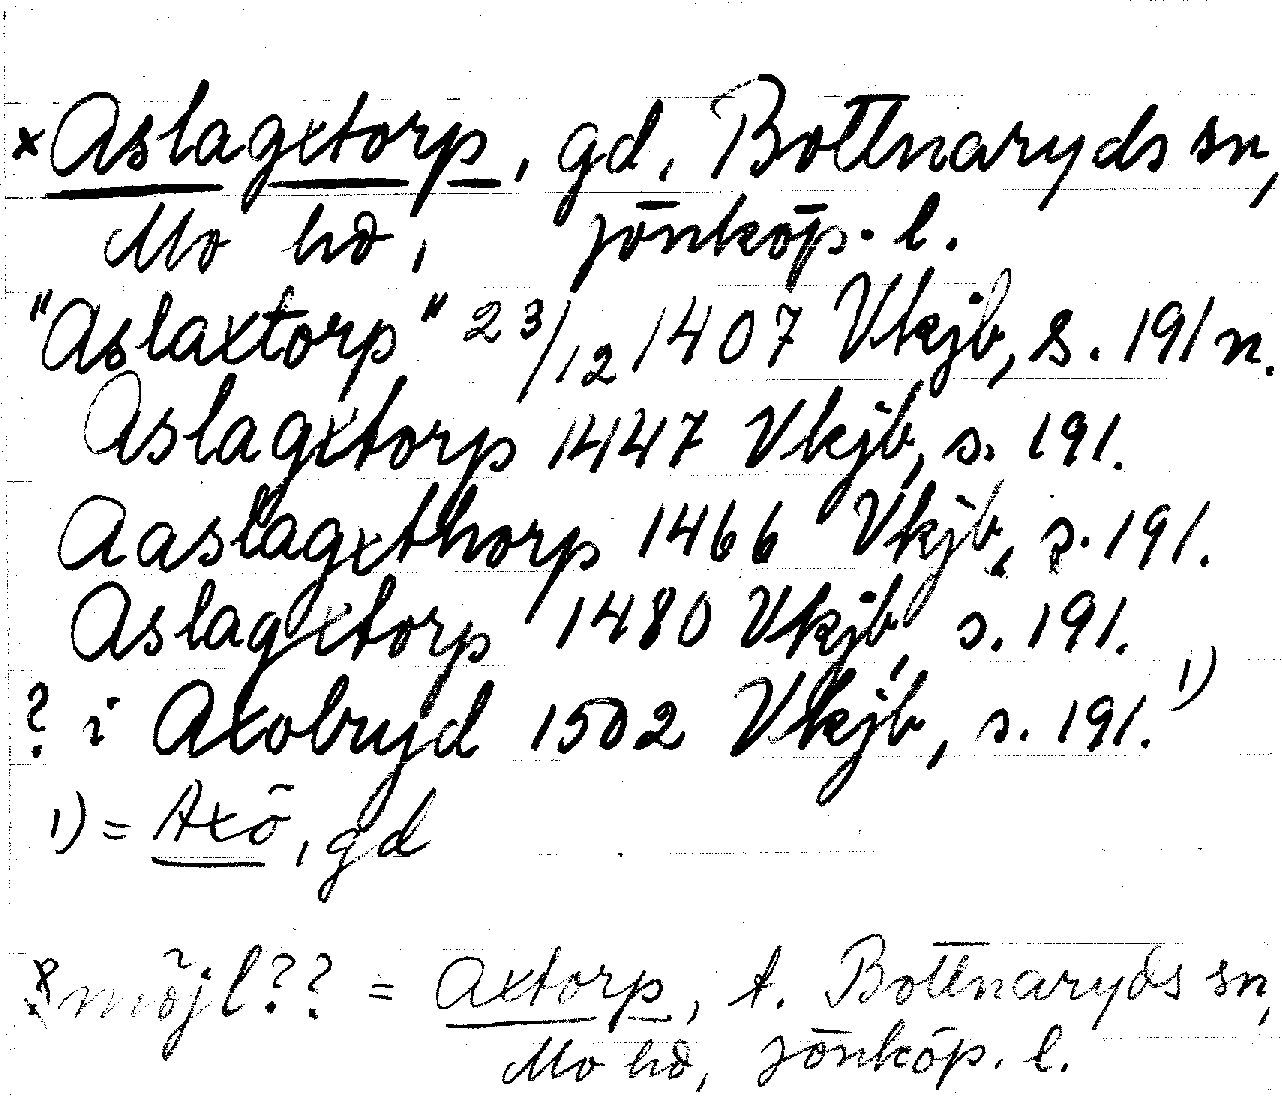 ×Aslagxtorp, gd, Bottnaryds sn,
Mo hd, Jönköp. l.
"Aslaxtorp" 23/12 1407 Vkjb, s. 191 n.
Aslagxtorp 1447 Vkjb, s. 191.
Aaslagxthorp 1466 Vkjb, s. 191.
Aslagxtorp 1480 Vkjb, s. 191.
? i Axobryd 1502 Vkjb, s. 191. 1)
1) = Axö, gd
möjl?? = Axtorp, t. Bottnaryds sn,
Mo hd, Jönköp. l.